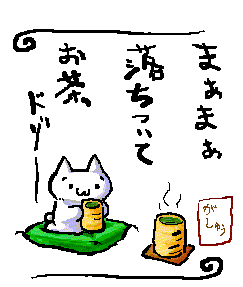 まぁまぁ
落ちついて
お茶、
ドゾー
がしゅう